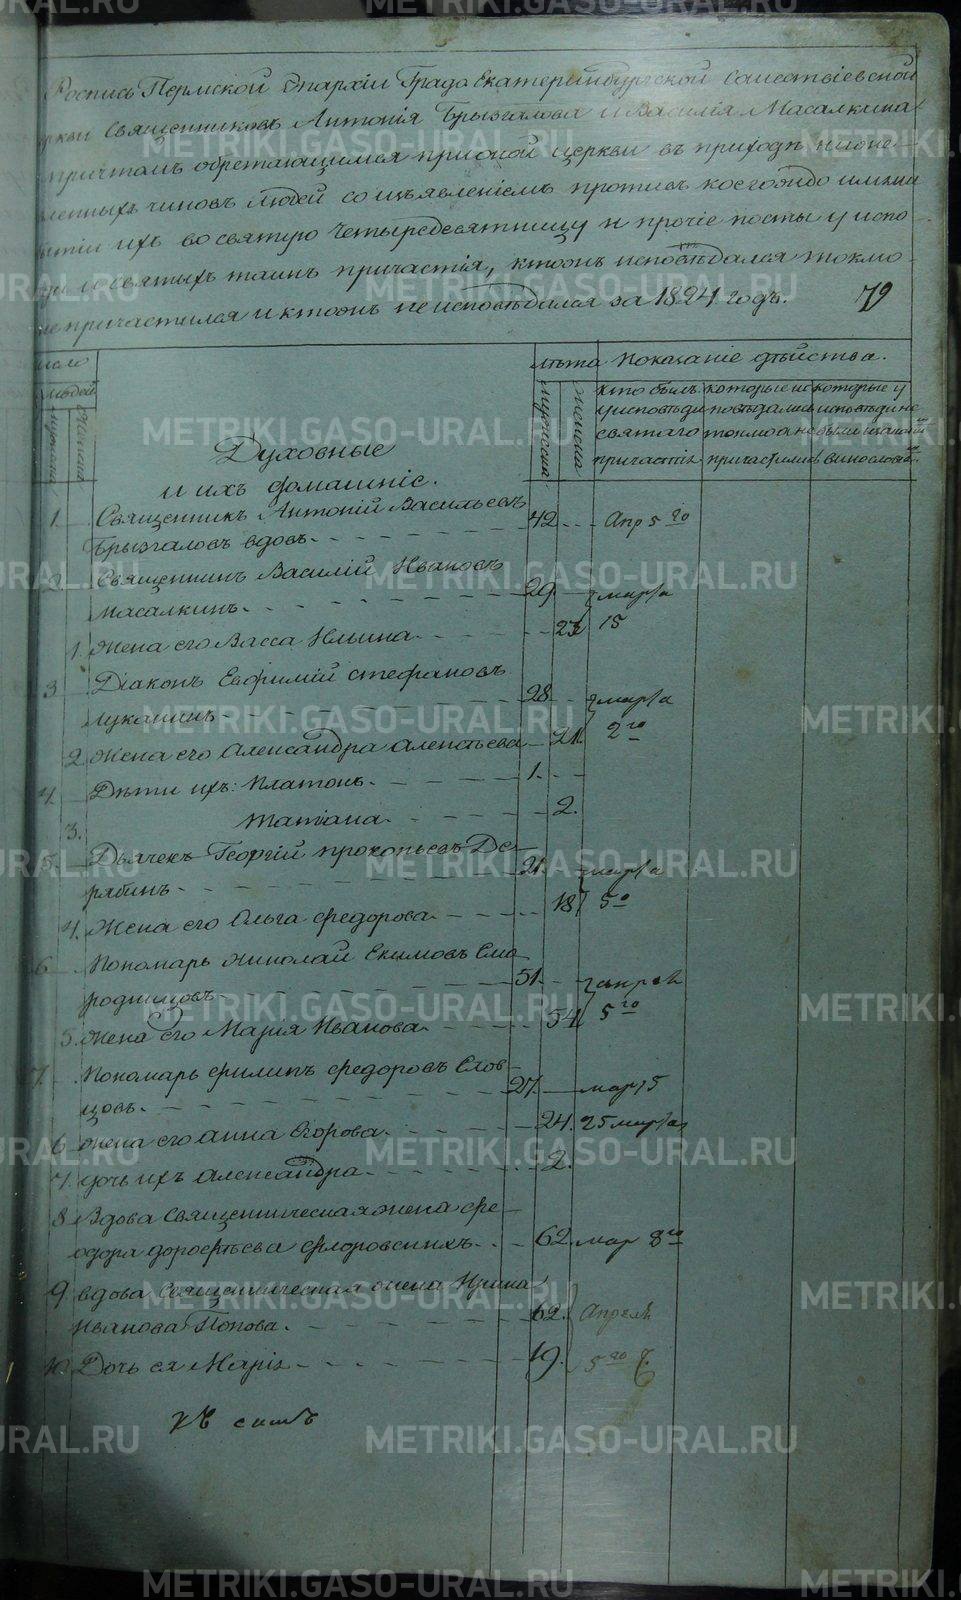 Роспись Пермской Епархіи Града Екатеринбургской Сошествіевской
церкви Священниковъ Антонія Брызгалова и Василія Масалкина
причтомъ обретающимся прионой церкви въ приходѣ нижне-
менныхъ чиновъ людей со изъявленіемъ противъ коегождо имени
бытіи ихъ во святую четыредесятницу и прочіе посты у испо-
и святыхъ таинъ причастія, ктожъ исповѣдался токмо
не причастился и ктожъ не исповѣдался за 1824 годъ. 79
число людей
мужеска женска
лѣта
мужеска женска
Показаніе дѣйства.
кто былъ у исповѣди святаго причастія
которые исповѣдались токмо а не причастились
которые у исповѣди не были и какой винословіе
Духовные
и ихъ домашніе.
1. Священникъ Антоній Васильевъ
Брызгаловъ вдовъ. 42 Апр 5 го
2. Священникъ Василій Ивановъ
Масалкинъ. 29 марта
1. Жена его Васса Ильина 23 15
3 Діаконъ Евфимій Стефановъ
Луканинъ 28 марта
2 Жена его Александра Алексѣева 21 2 го
4. Дѣти ихъ: Платонъ. 1.
3. Татіана. 2.
5. Дьячекъ Георгій Прокопьевъ Де-
рябинъ 21. марта
4. Жена его Ольга Федорова. 18 5 о
6 Пономарь Николай Екимовъ Смо
родинцовъ 51. апрѣл
5. Жена его Марія Иванова. 54 5 го
7. Пономарь Филипъ Федоровъ Слов-
цовъ. 27. мар 15
6 Жена его Анна Егорова. 24. 25 марта
7. Дочь ихъ Александра. 2.
8 Вдова Священническая жена Фе-
одора Дорофѣева Флоровскихъ. 62. мар 8 го
9 Вдова Священническая жена Ирина
Иванова Попова. 62. Апрель
10. Дочь ея Марія 19. 5 го
METRIKI.GASO-URAL.RU